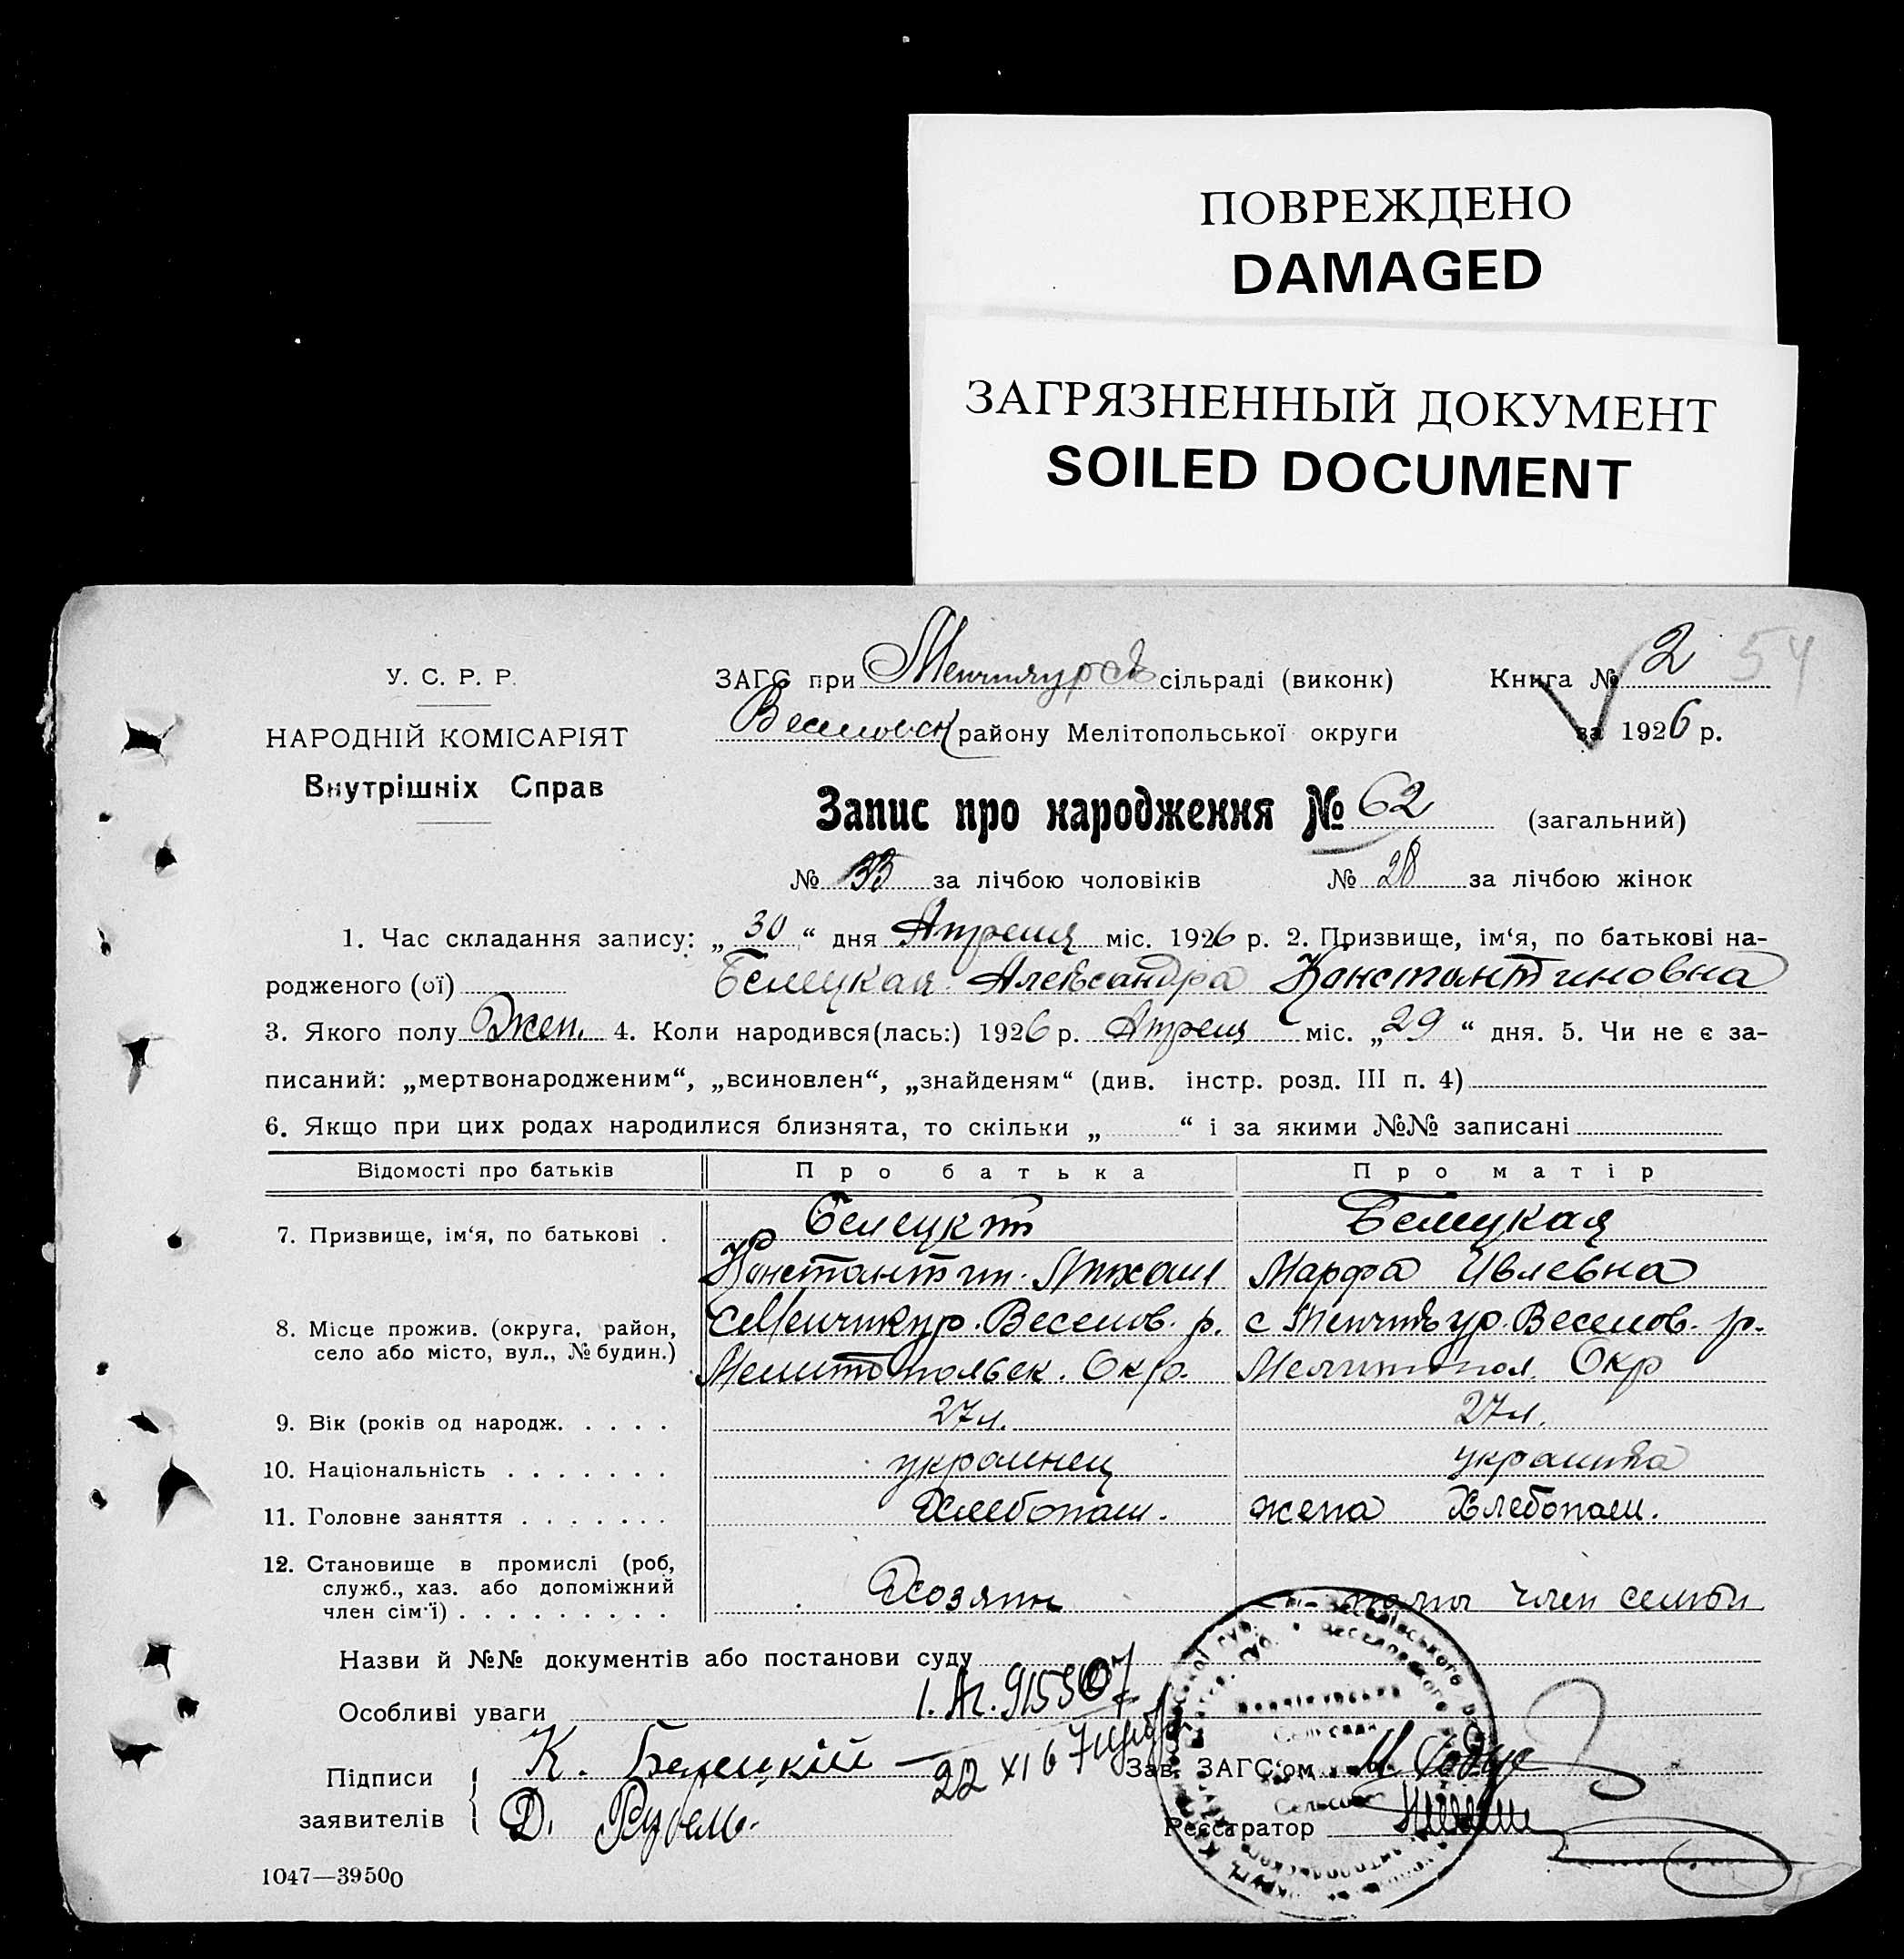 ПОВРЕЖДЕНО
DAMAGED
ЗАГРЯЗНЕННЫЙ ДОКУМЕНТ
SOILED DOCUMENT
У. С. Р. Р.
НАРОДНІЙ КОМІСАРІЯТ
Внутрішніх Справ
ЗАГС при сільраді (виконк)
Веселовск району Мелітопольської округи
Книга № 2 54
за 1926 р.
Запис про народження № 62 (загальний)
№ 33 за лічбою чоловіків № 28 за лічбою жінок
1. Час складання запису: „ 30 “ дня Апреля міс. 1926 р. 2. Призвище, ім‘я, по батькові на-
родженого (ої) Белецкая Александра Константиновна
3. Якого полу Жен. 4. Коли народився(лась:) 1926 р. Апреля міс. „ 29 “ дня. 5. Чи не є за-
писаний: „мертвонародженим“, „всиновлен“, „знайденям“ (див. інстр. розд. III п. 4)
6. Якщо при цих родах народилися близнята, то скільки „ “ і за якими №№ записані
Відомості про батьків Про батька Про матір
7. Призвище, ім‘я, по батькові . Белецкий Белецкая
Константин Михаил Марфа Ивлевна
8. Місце прожив. (округа, район, с Менчикур. Веселов. р. с Менчикур. Веселов. р.
село або місто, вул., № будин.) Мелитопольск. Окр. Мелитопол. Окр
9. Вік (років од народж. . . . . 27 л. 27 л.
10. Національність . . . . . . . украинец украинка
11. Головне заняття . . . . . . . Хлебопаш. жена Хлебопаш.
12. Становище в промислі (роб,
служб., хаз. або допоміжний
член сім‘ї) . . . . . . . . . Хозяин член семьи
Назви й №№ документів або постанови суду
Особливі уваги
Підписи
заявителів
К. Белецкій
Д. Рубель.
22 XI 67
Зав. ЗАГС‘ом
Реєстратор
1047—39500